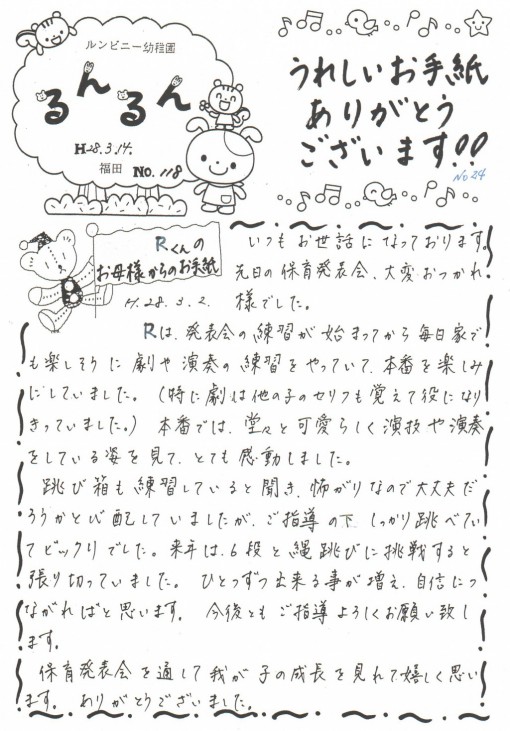 ルンビニー幼稚園
るんるん
H28.3.14.
福田 NO.118
うれしいお手紙
ありがとう
ございます!!
No 24
Rくんの
お母様からのお手紙
H.28.3.2.
いつもお世話になっております。
先日の保育発表会、大変おつかれ
様でした。
Rは、発表会の練習が始まってから毎日家で
も楽しそうに劇や演奏の練習をやっていて、本番を楽しみ
にしていました。(特に劇は他の子のセリフも覚えて役になり
きっていました。) 本番では、堂々と可愛らしく演技や演奏
をしている姿を見て、とても感動しました。
跳び箱も練習していると聞き、怖がりなので大丈夫だ
ろうかと心配していましたが、ご指導の下、しっかり跳べてい
てビックリでした。来年は、6段と縄跳びに挑戦すると
張り切っていました。ひとつずつ出来る事が増え、自信につ
ながればと思います。今後ともご指導よろしくお願い致し
ます。
保育発表会を通して我が子の成長を見れて嬉しく思い
ます。ありがとうございました。